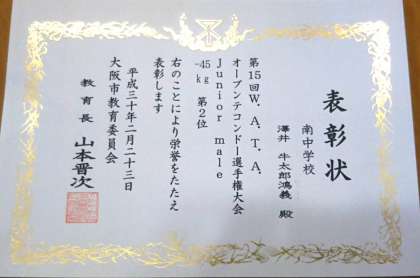 表彰状
南中学校
澤井 牛太郎鴻義 殿
第15回W．A．T．A．
オープンテコンドー選手権大会
Junior male
-45kg 第2位
右のことにより栄誉をたたえ
表彰します
平成三十年二月二十三日
大阪市教育委員会
教育長 山本晋次